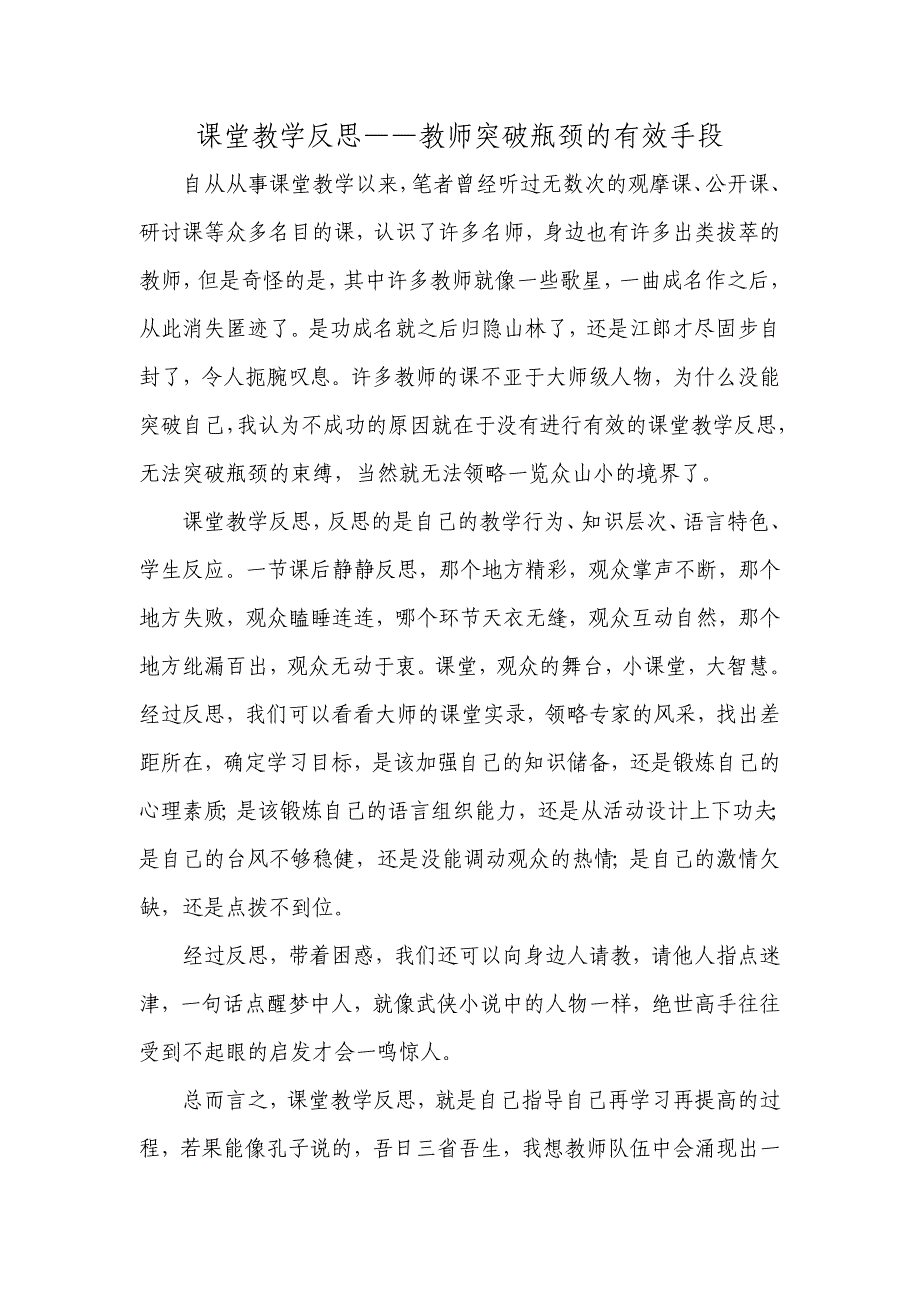 课堂教学反思——教师突破瓶颈的有效手段
自从从事课堂教学以来，笔者曾经听过无数次的观摩课、公开课、
研讨课等众多名目的课，认识了许多名师，身边也有许多出类拔萃的
教师，但是奇怪的是，其中许多教师就像一些歌星，一曲成名作之后，
从此消失匿迹了。是功成名就之后归隐山林了，还是江郎才尽固步自
封了，令人扼腕叹息。许多教师的课不亚于大师级人物，为什么没能
突破自己，我认为不成功的原因就在于没有进行有效的课堂教学反思，
无法突破瓶颈的束缚，当然就无法领略一览众山小的境界了。
课堂教学反思，反思的是自己的教学行为、知识层次、语言特色、
学生反应。一节课后静静反思，那个地方精彩，观众掌声不断，那个
地方失败，观众瞌睡连连，哪个环节天衣无缝，观众互动自然，那个
地方纰漏百出，观众无动于衷。课堂，观众的舞台，小课堂，大智慧。
经过反思，我们可以看看大师的课堂实录，领略专家的风采，找出差
距所在，确定学习目标，是该加强自己的知识储备，还是锻炼自己的
心理素质；是该锻炼自己的语言组织能力，还是从活动设计上下功夫；
是自己的台风不够稳健，还是没能调动观众的热情；是自己的激情欠
缺，还是点拨不到位。
经过反思，带着困惑，我们还可以向身边人请教，请他人指点迷
津，一句话点醒梦中人，就像武侠小说中的人物一样，绝世高手往往
受到不起眼的启发才会一鸣惊人。
总而言之，课堂教学反思，就是自己指导自己再学习再提高的过
程，若果能像孔子说的，吾日三省吾生，我想教师队伍中会涌现出一